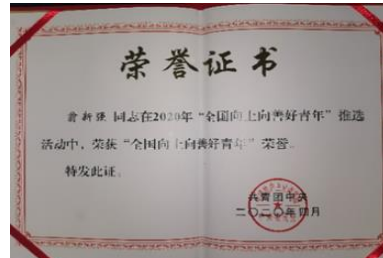 荣誉证书
同志在2020年“全国向上向善好青年”推选
活动中，荣获“全国向上向善好青年”荣誉。
特发此证。
共青团中央
二〇二〇年四月